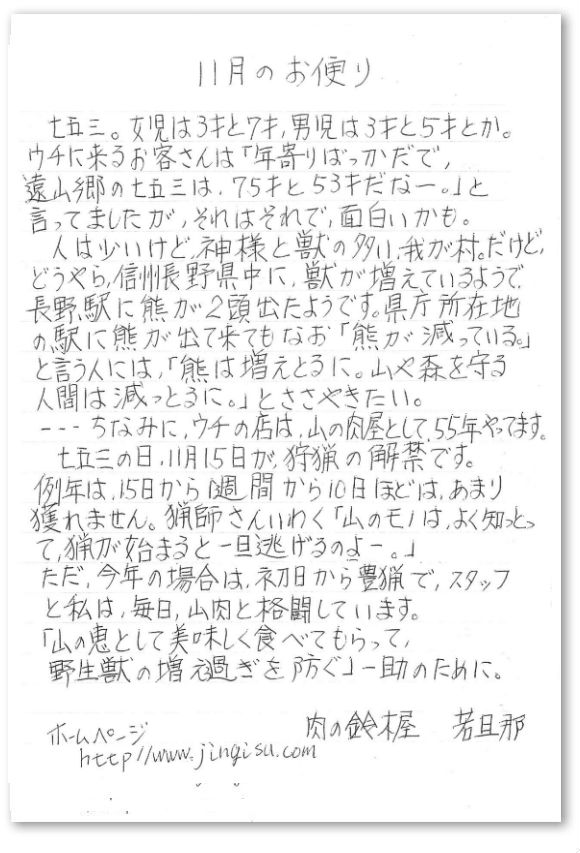 11月のお便り
七五三。女児は3才と7才,男児は3才と5才とか。
ウチに来るお客さんは「年寄りばっかだで,
遠山郷の七五三は,75才と53才だなー。」と
言ってましたが,それはそれで,面白いかも。
人は少いけど,神様と獣の多い,我が村。だけど,
どうやら,信州長野県中に,獣が増えているようで
長野駅に熊が2頭出たようです。県庁所在地
の駅に熊が出て来てもなお「熊が減っている。」
と言う人には,「熊は増えとるに。山や森を守る
人間は減っとるに。」とささやきたい。
---ちなみに,ウチの店は,山の肉屋として,55年やってます。
七五三の日,11月15日が,狩猟の解禁です。
例年は,15日から1週間から10日ほどは,あまり
獲れません。猟師さんいわく「山のモノは,よく知っとっ
て,猟が始まると一旦逃げるのよー。」
ただ,今年の場合は,初日から豊猟で,スタッフ
と私は,毎日,山肉と格闘しています。
「山の恵として美味しく食べてもらって,
野生獣の増え過ぎを防ぐ」一助のために。
肉の鈴木屋 若旦那
ホームページ
http//www.jingisu.com